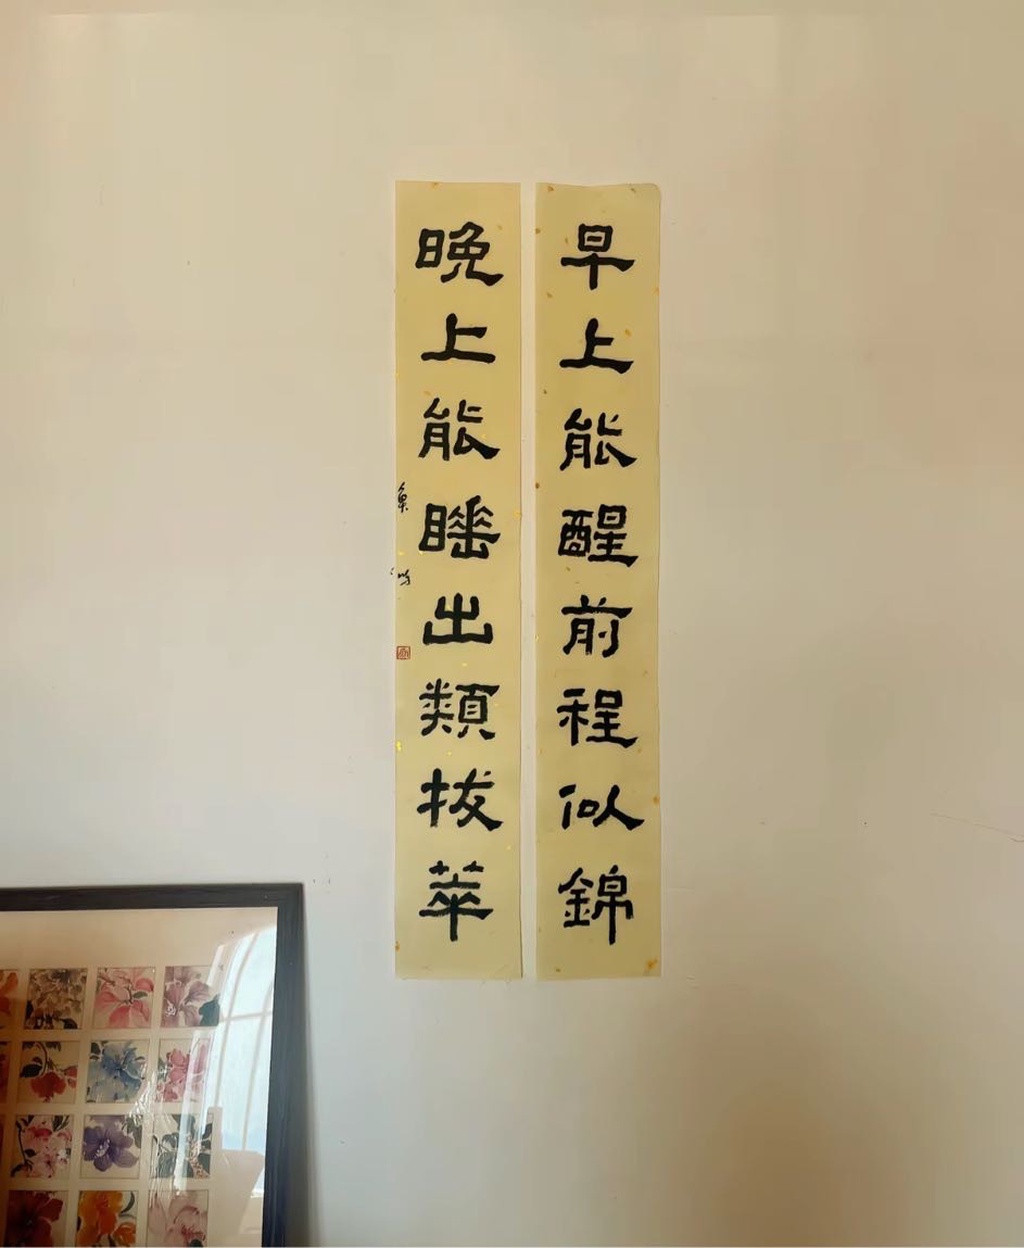 早上能醒前程似錦
晚上能睡出類拔萃